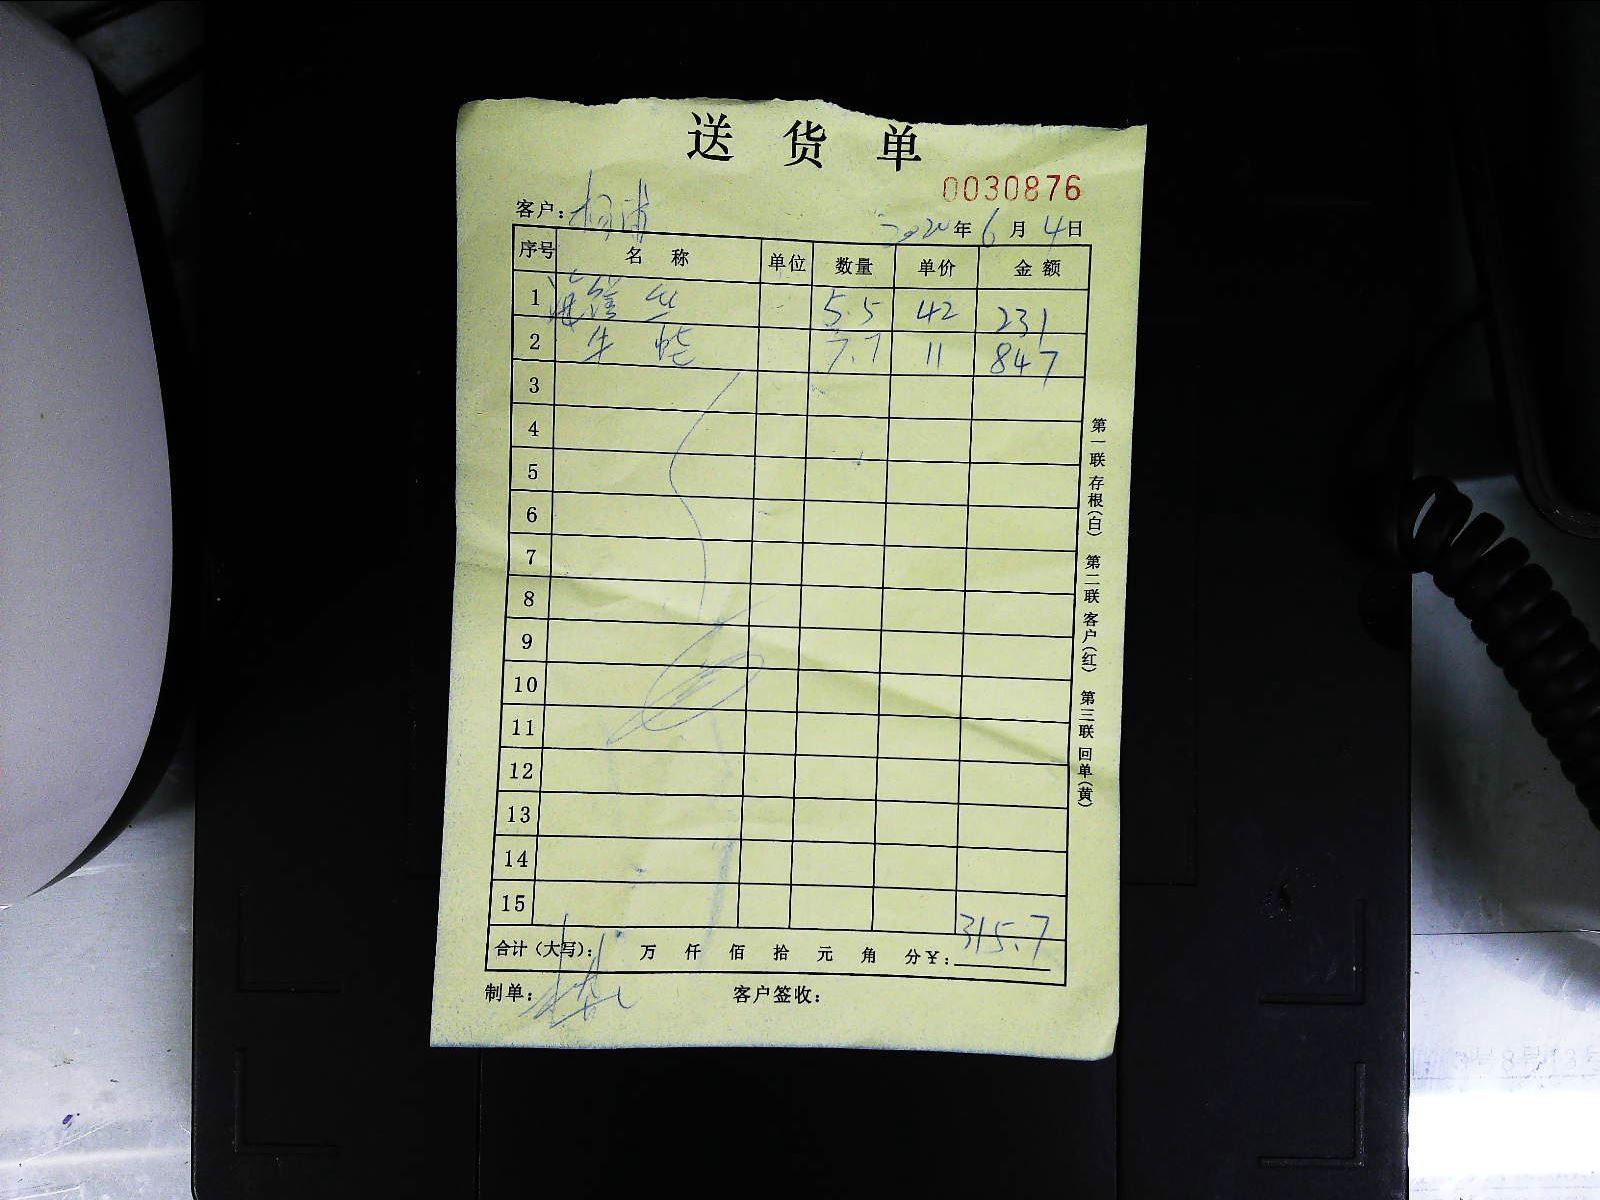 送 货 单
0030876
客户：
2020年6月4日
序号 名 称 单位 数量 单价 金额
1 丝 5.5 42 231
2 生蚝 7.7 11 847
3
4
5
6
7
8
9
10
11
12
13
14
15
合计（大写）： 万 仟 佰 拾 元 角 分￥：315.7
制单： 客户签收：
第一联 存根（白） 第二联 客户（红） 第三联 回单（黄）